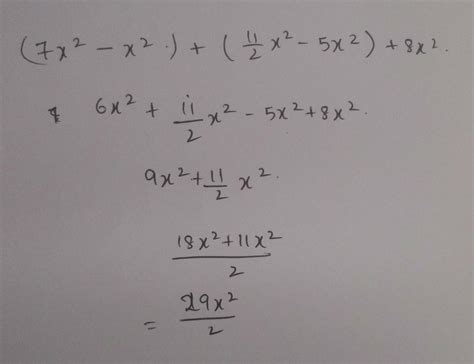 (7x² - x² .) + (11/2 x² - 5x²) + 8x².
6x² + 11/2 x² - 5x² + 8x².
9x² + 11/2 x².
18x² + 11x² / 2
= 29x² / 2